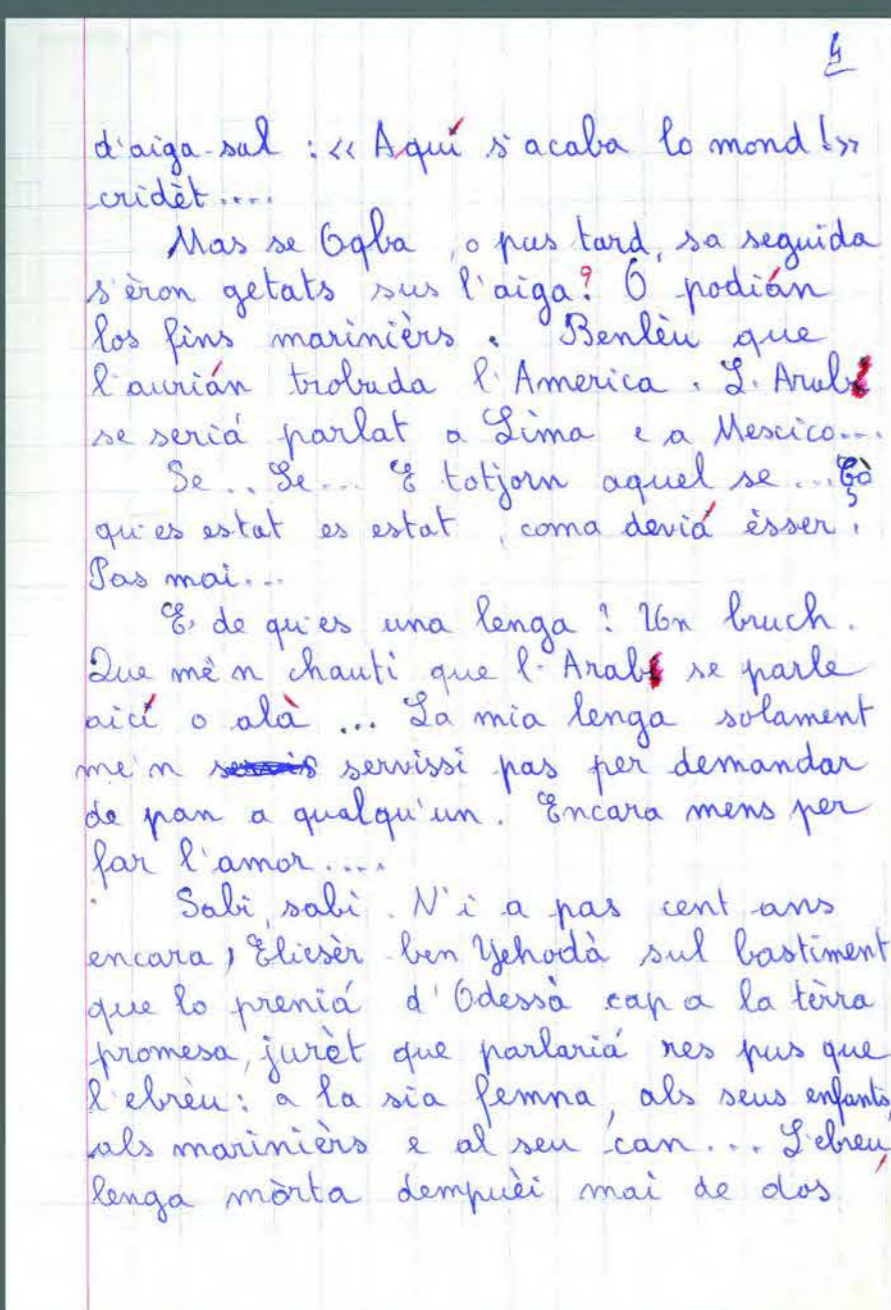 4
d'aiga-sal : « Aquí s'acaba lo mond ! »
cridèt....
Mas se Oqba, o pus tard, sa seguida
s'èron getats sus l'aiga? O podián
los fins marinièrs. Benlèu que
l'aurián trobada l'America. L'Arab
se seriá parlat a Lima e a Mescico...
Se.. Se... E totjorn aquel se... Çò
qu'es estat es estat, coma deviá èsser.
Pas mai...
E, de qu'es una lenga ? Un bruch.
Que mè'n chauti que l'Arab se parle
aicí o alà ... La mia lenga solament
me'n servissi pas per demandar
de pan a qualqu'un. Encara mens per
far l'amor....
Sabi, sabi. N'i a pas cent ans
encara, Elicsèr ben Yehodà sul bastiment
que lo preniá d'Odessà cap a la tèrra
promesa, jurèt que parlariá res pus que
l'ebrèu: a la sia femna, als seus enfants,
als marinièrs e al seu can... L'ebreu,
lenga mòrta dempuèi mai de dos